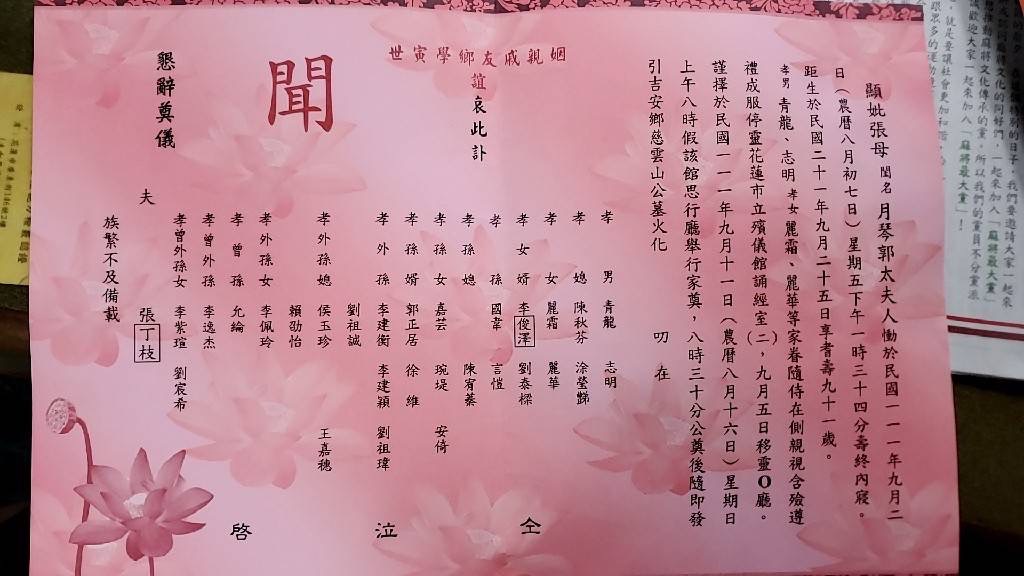 顯妣張母閨名月琴郭太夫人慟於民國一一一年九月二
日（農曆八月初七日）星期五下午一時三十四分壽終內寢。
距生於民國二十一年九月二十五日享耆壽九十一歲。
孝男青龍、志明孝女麗霜、麗華等家眷隨侍在側親視含殮遵
禮成服停靈花蓮市立殯儀館誦經室(二)，九月五日移靈O廳。
謹擇於民國一一一年九月十一日（農曆八月十六日）星期日
上午八時假該館思行廳舉行家奠，八時三十分公奠後隨即發
引吉安鄉慈雲山公墓火化 叨在
姻親戚友鄉學寅世
誼哀此訃
聞
孝男 青龍 志明
孝媳 陳秋芬 涂瑩
孝女 麗霜 麗華
孝女婿 李俊澤 劉泰樑
孝孫 國 言愷
孝孫媳 陳宥蓁
孝孫女 嘉芸 琬堤 安倚
孝孫婿 郭正居 徐維
孝外孫 李建衡 李建穎 劉祖瑋
劉祖誠
孝外孫媳 侯玉珍 王嘉穗
賴劭怡
孝外孫女 李佩玲
孝曾孫 允綸
孝曾外孫 李逸杰
孝曾外孫女 李紫瑄 劉宸希
夫 張丁枝
仝 泣 啓
族繁不及備載
懇辭奠儀